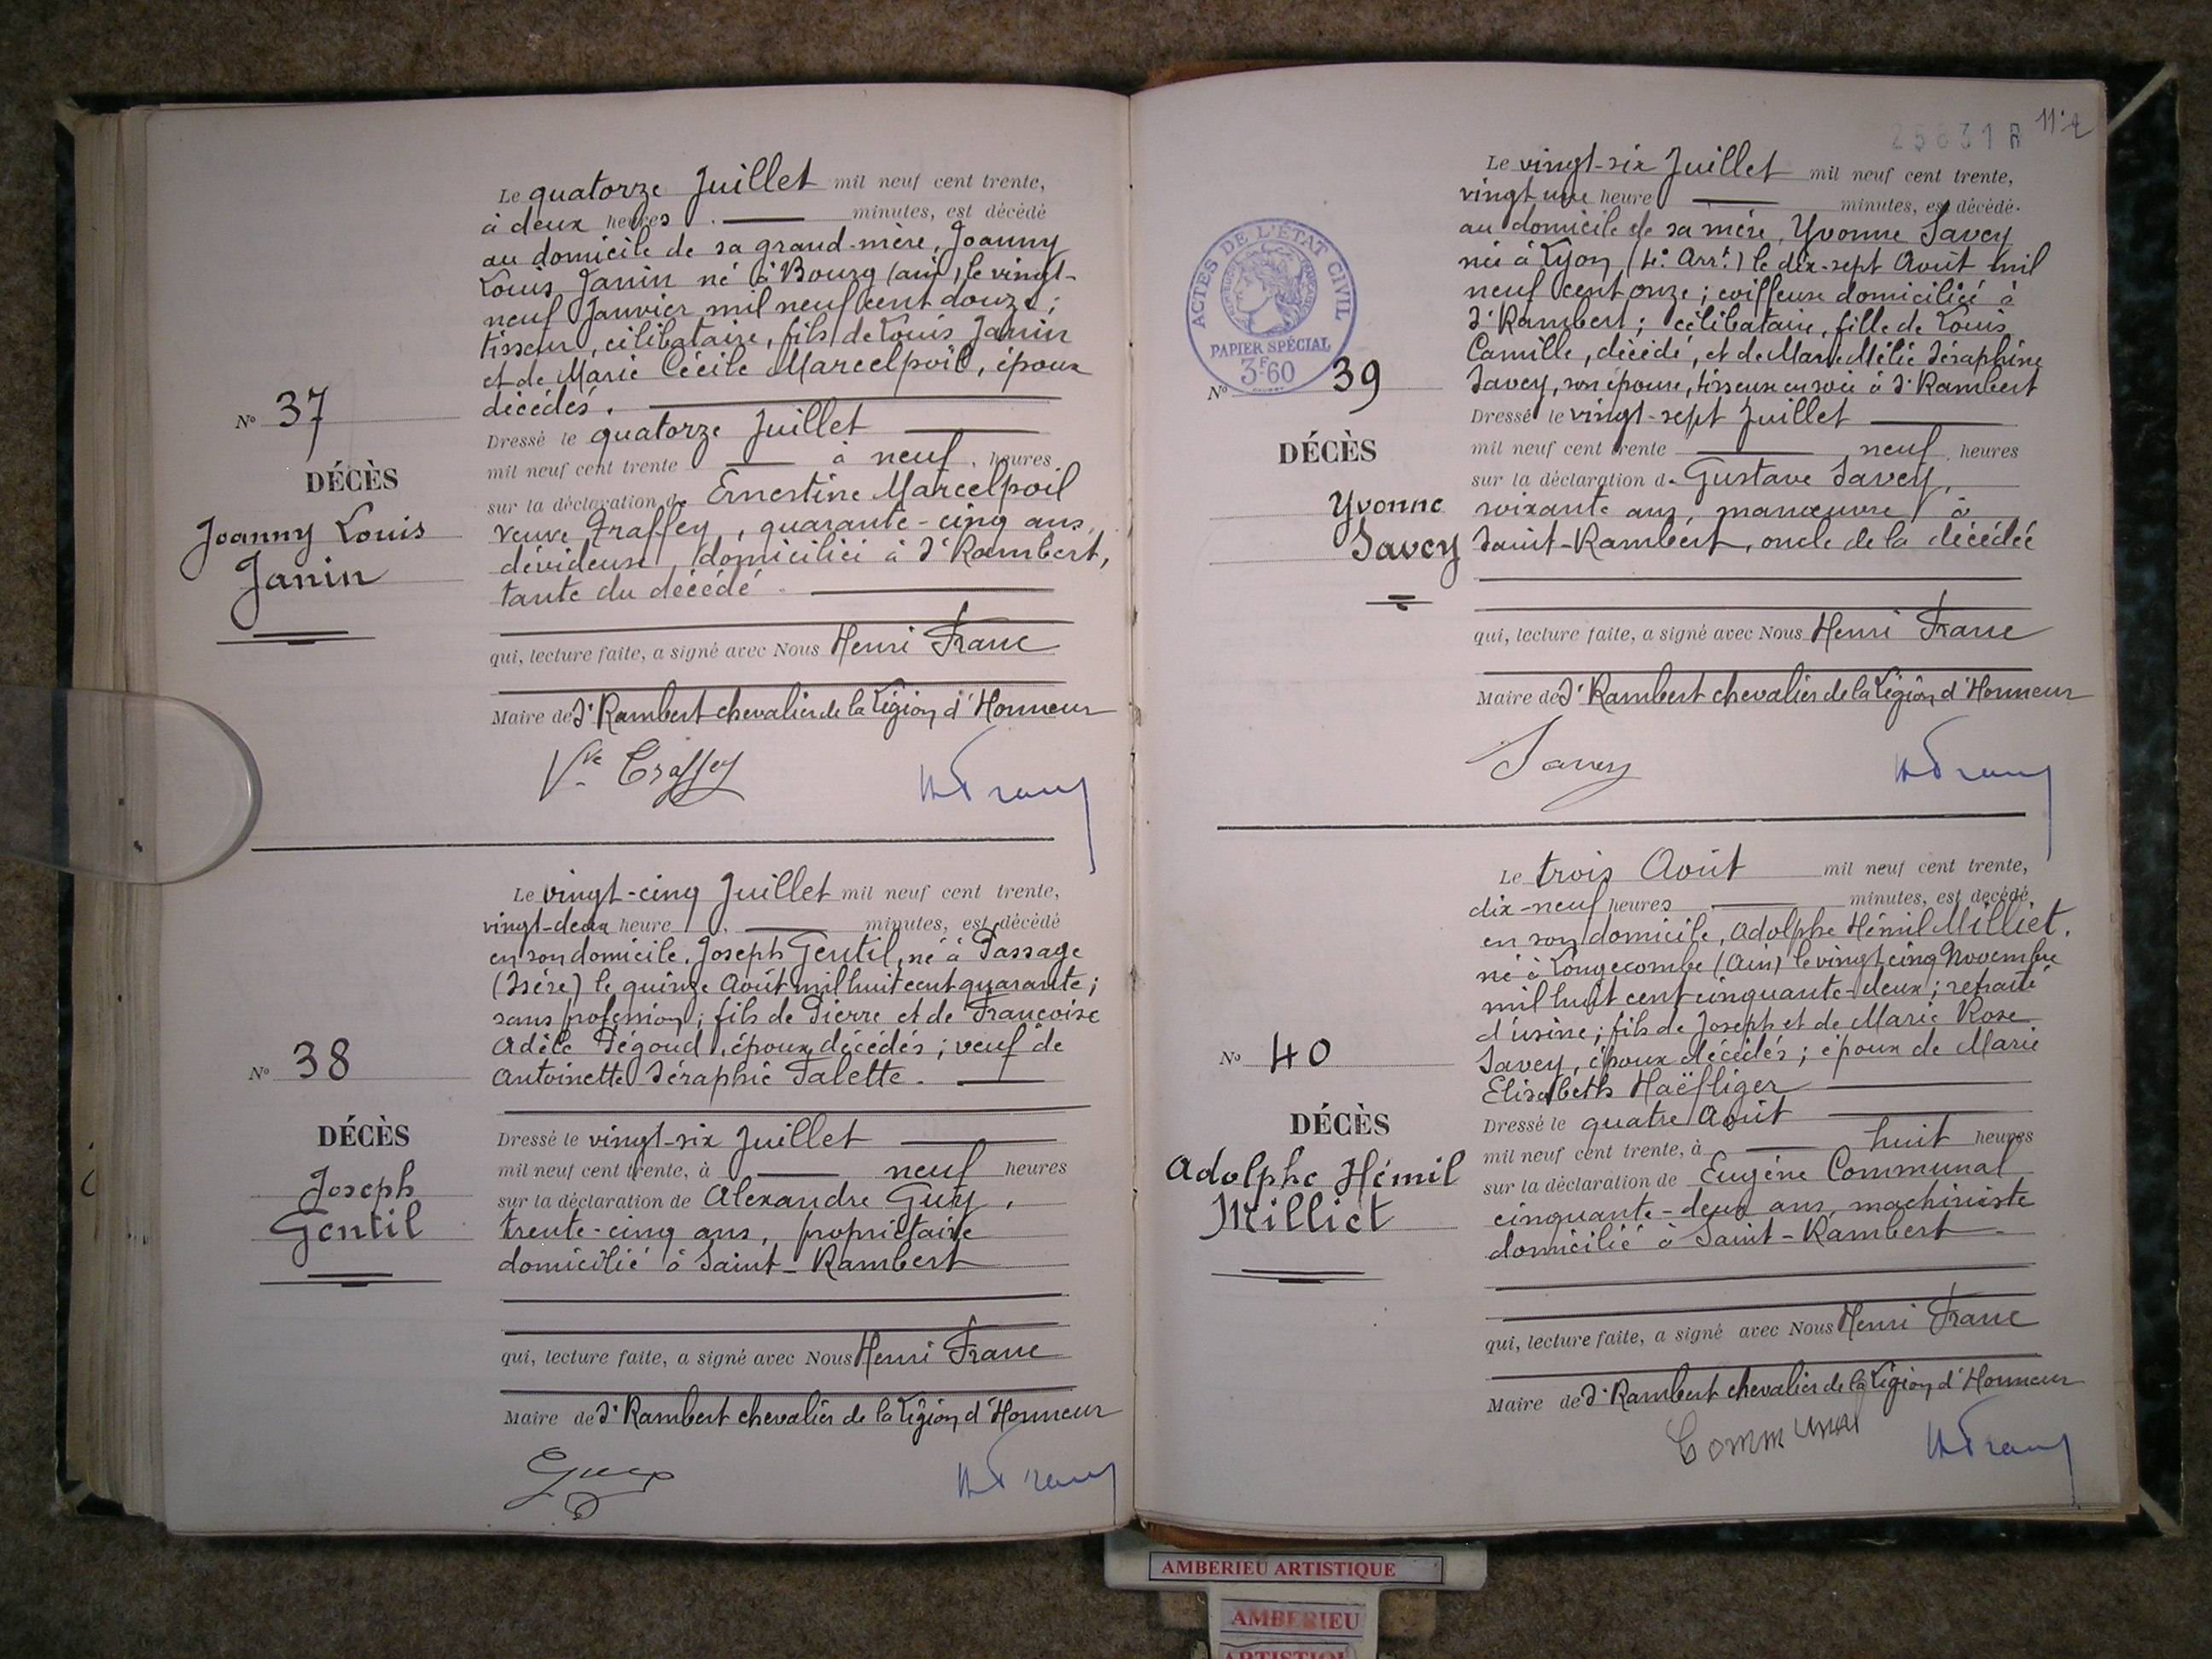 Le quatorze Juillet mil neuf cent trente,
à deux heures minutes, est décédé
au domicile de sa grand-mère, Joanny
Louis Janin né à Bourg (ain), le vingt-
neuf Janvier mil neuf cent douze;
tisseur, célibataire, fils de Louis Janin
et de Marie Cécile Marcelpoil, époux
décédés.
N° 37
DÉCÈS
Joanny Louis
Janin
Dressé le quatorze Juillet
mil neuf cent trente à neuf heures
sur la déclaration de Ernestine Marcelpoil
veuve Traffey, quarante-cinq ans,
dévideuse, domiciliée à St Rambert,
tante du décédé.
qui, lecture faite, a signé avec Nous Henri Franc
Maire de St Rambert chevalier de la Légion d'Honneur
Vve Traffey
Le vingt-cinq Juillet mil neuf cent trente,
vingt-deux heure minutes, est décédé
en son domicile, Joseph Gentil, né à Passage
(Isère) le quinze Août mil huit cent quarante;
sans profession; fils de Pierre et de Françoise
Adèle Pégoud, époux décédés; veuf de
Antoinette Séraphie Palette.
N° 38
DÉCÈS
Joseph
Gentil
Dressé le vingt-six Juillet
mil neuf cent trente, à neuf heures
sur la déclaration de Alexandre Guy,
trente-cinq ans, propriétaire
domicilié à Saint-Rambert
qui, lecture faite, a signé avec Nous Henri Franc
Maire de St Rambert chevalier de la Légion d'Honneur
Guy
11
Le vingt-six Juillet mil neuf cent trente,
vingt une heure minutes, est décédé
au domicile de sa mère, Yvonne Savey
née à Lyon (4e Arrt) le dix-sept Août mil
neuf cent onze; coiffeuse domiciliée à
St Rambert; célibataire, fille de Louis
Camille, décédé, et de Marie Mélie Séraphine
Savey, son épouse, tisseuse en soie à St Rambert
ACTES DE L'ÉTAT CIVIL
PAPIER SPÉCIAL
3F60
N° 39
DÉCÈS
Yvonne
Savey
Dressé le vingt-sept Juillet
mil neuf cent trente neuf heures
sur la déclaration de Gustave Savey,
soixante ans, manœuvre à
Saint-Rambert, oncle de la décédée
qui, lecture faite, a signé avec Nous Henri Franc
Maire de St Rambert chevalier de la Légion d'Honneur
Savey
Le trois Août mil neuf cent trente,
dix-neuf heures minutes, est décédé
en son domicile, Adolphe Hémil Milliet,
né à Longecombe (Ain) le vingt cinq Novembre
mil huit cent cinquante-deux; retraité
d'usine; fils de Joseph et de Marie Rose
Savey, époux décédés; époux de Marie
Elisabeth Haëfliger
N° 40
DÉCÈS
Adolphe Hémil
Milliet
Dressé le quatre Août
mil neuf cent trente, à huit heures
sur la déclaration de Eugène Communal
cinquante-deux ans, machiniste
domicilié à Saint-Rambert
qui, lecture faite, a signé avec Nous Henri Franc
Maire de St Rambert chevalier de la Légion d'Honneur
Communal
AMBERIEU ARTISTIQUE
AMBERIEU
ARTISTIQUE